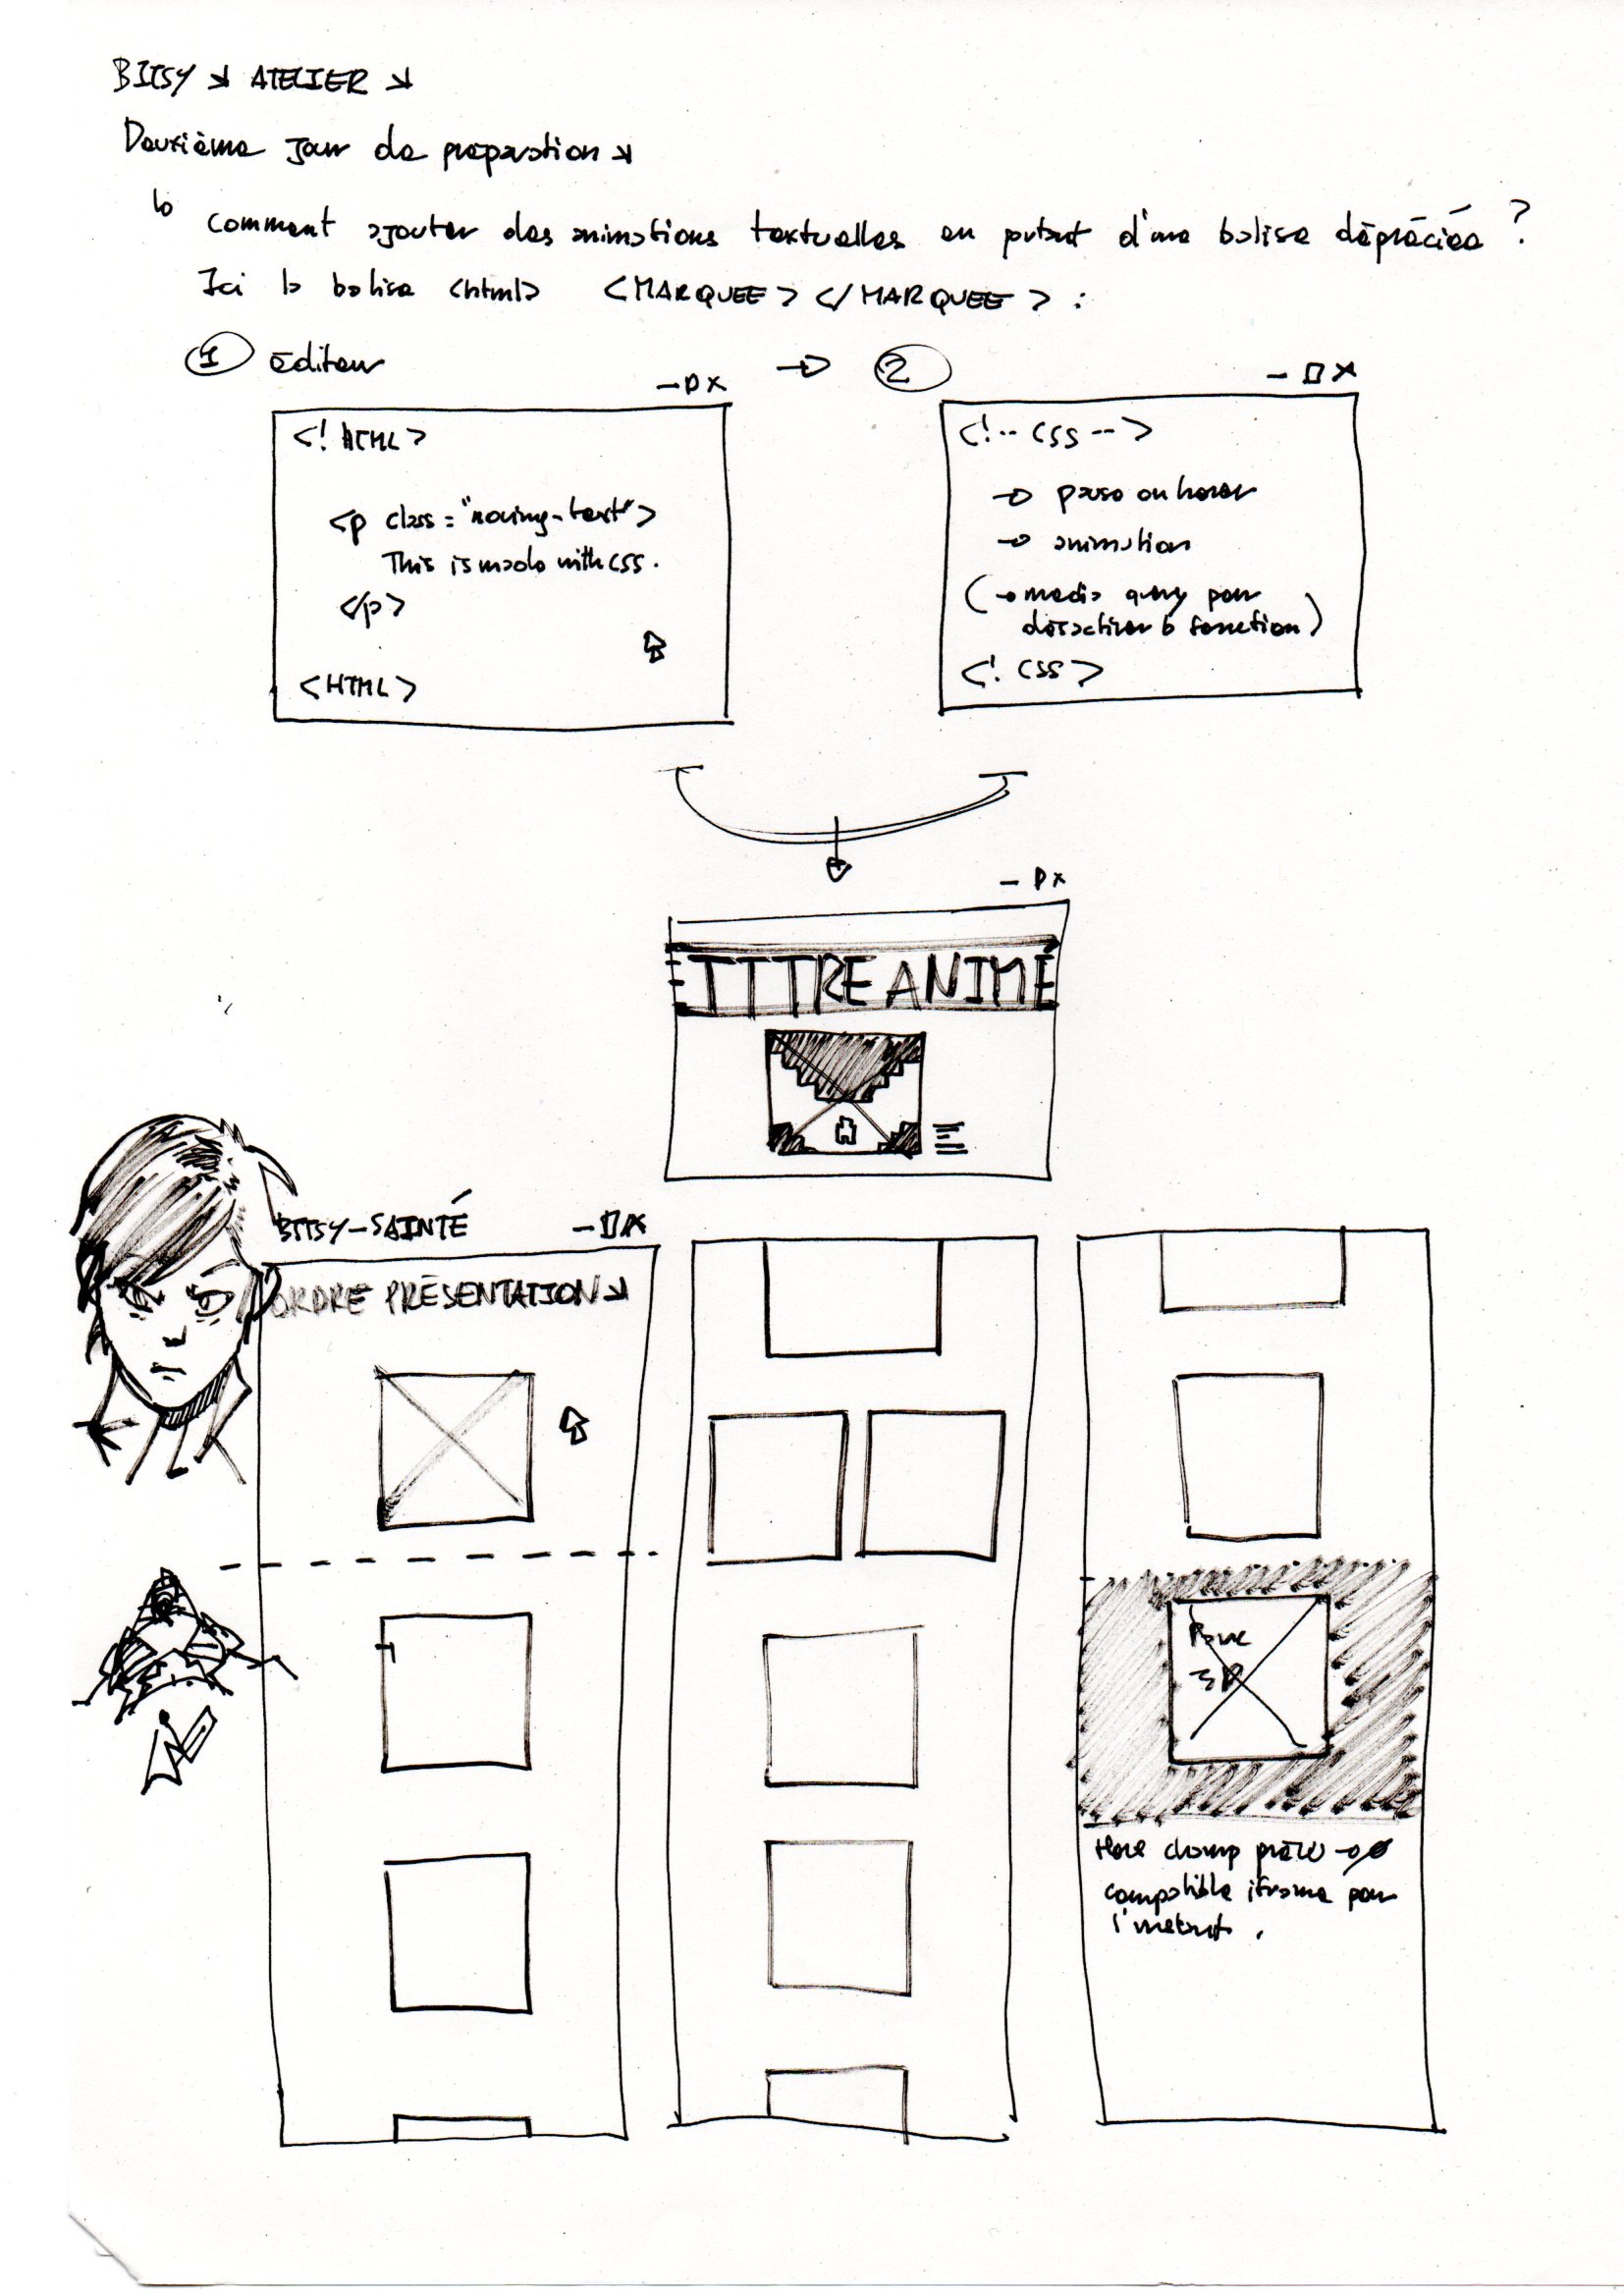 BITSY ↘ ATELIER ↘
Deuxième jour de préparation ↘
↳ comment ajouter des animations textuelles en partant d'une balise dépréciée ?
Ici la balise <html> <MARQUEE> </MARQUEE> :
① éditeur → ②
<! HTML>
<p class="moving-text">
This is made with CSS.
</p>
<HTML>
<!-- CSS -->
→ pause on hover
→ animation
(→ media query pour
désactiver la fonction)
<! CSS>
TITRE ANIMÉ
BITSY-SAINTÉ
ORDRE PRÉSENTATION ↘
Pour
3D
Hors champ
compatible iframe pour
l'instant.